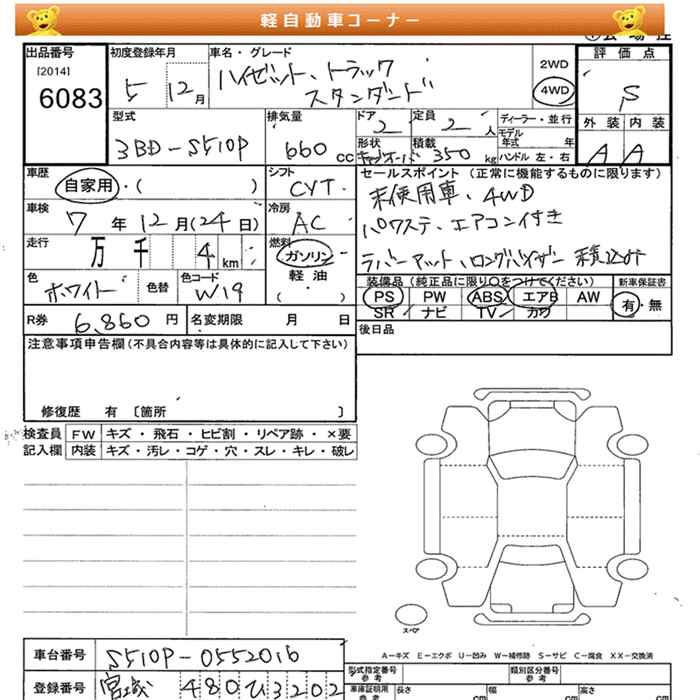 軽自動車コーナー
出品番号 初度登録年月 車名・グレード 評価点
[2014] 6083 5 12月 ハイゼット、トラック スタンダード 2WD 4WD S
型式 排気量 ドア 定員 ディーラー・並行 外装 内装
3BD-S510P 660 cc 2 2 人 モデル年式 年 A A
形状 積載 350 kg ハンドル 左・右
車歴 シフト セールスポイント(正常に機能するものに限ります)
自家用・( ) CVT. 未使用車、4WD
車検 7年12月(24日) 冷房 AC パワステ、エアコン付き
走行 万 千 4 km 燃料 ガソリン 軽油 ( ) ラバーマット、ロングバイザー 積込み
色 ホワイト 色替 色コード W19
装備品(純正品に限り○をつけてください) 新車保証書
PS PW ABS エアB AW 有・無
SR ナビ TV カワ
R券 6,860円 名変期限 月 日 後日品
注意事項申告欄(不具合内容等は具体的に記入して下さい)
修復歴 有 〔箇所 〕
検査員 FW キズ・飛石・ヒビ割・リペア跡・×要
記入欄 内装 キズ・汚レ・コゲ・穴・スレ・キレ・破レ
スペア
A-キズ E-エクボ U-凹み W-補修跡 S-サビ C-腐食 XX-交換済
車台番号 S510P-0552016 型式指定番号 参考 類別区分番号 参考
登録番号 宮城 480ひ3202 車庫証明用 参考 長さ cm 幅 cm 高さ cm